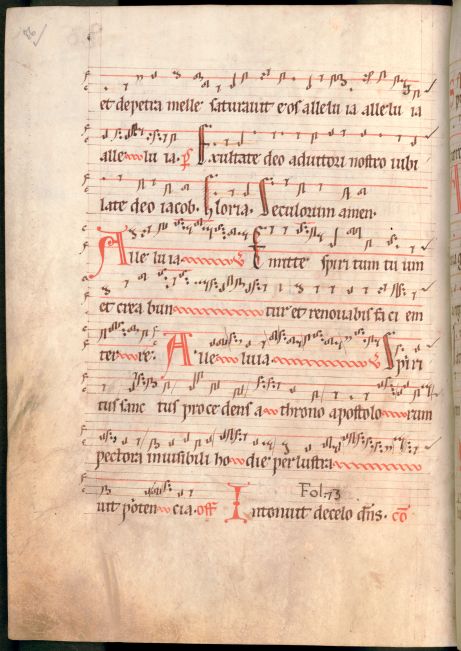 et depetra melle saturavit eos allelu ia allelu ia
alle lu ia. p̄ Exultate deo adiutori nostro iubi
late deo iacob. Gloria. Seculorum amen.
Alle luia v̄ Emitte spiri tum tu um
et crea bun tur et renovabis fa ci em
ter re. Alle luia v̄ Spiri
tus sanc tus procedens a throno apostolo rum
pectora invisibili ho die perlustra
Fol. 73
vit poten cia. off Intonuit decelo dn̄s. cō